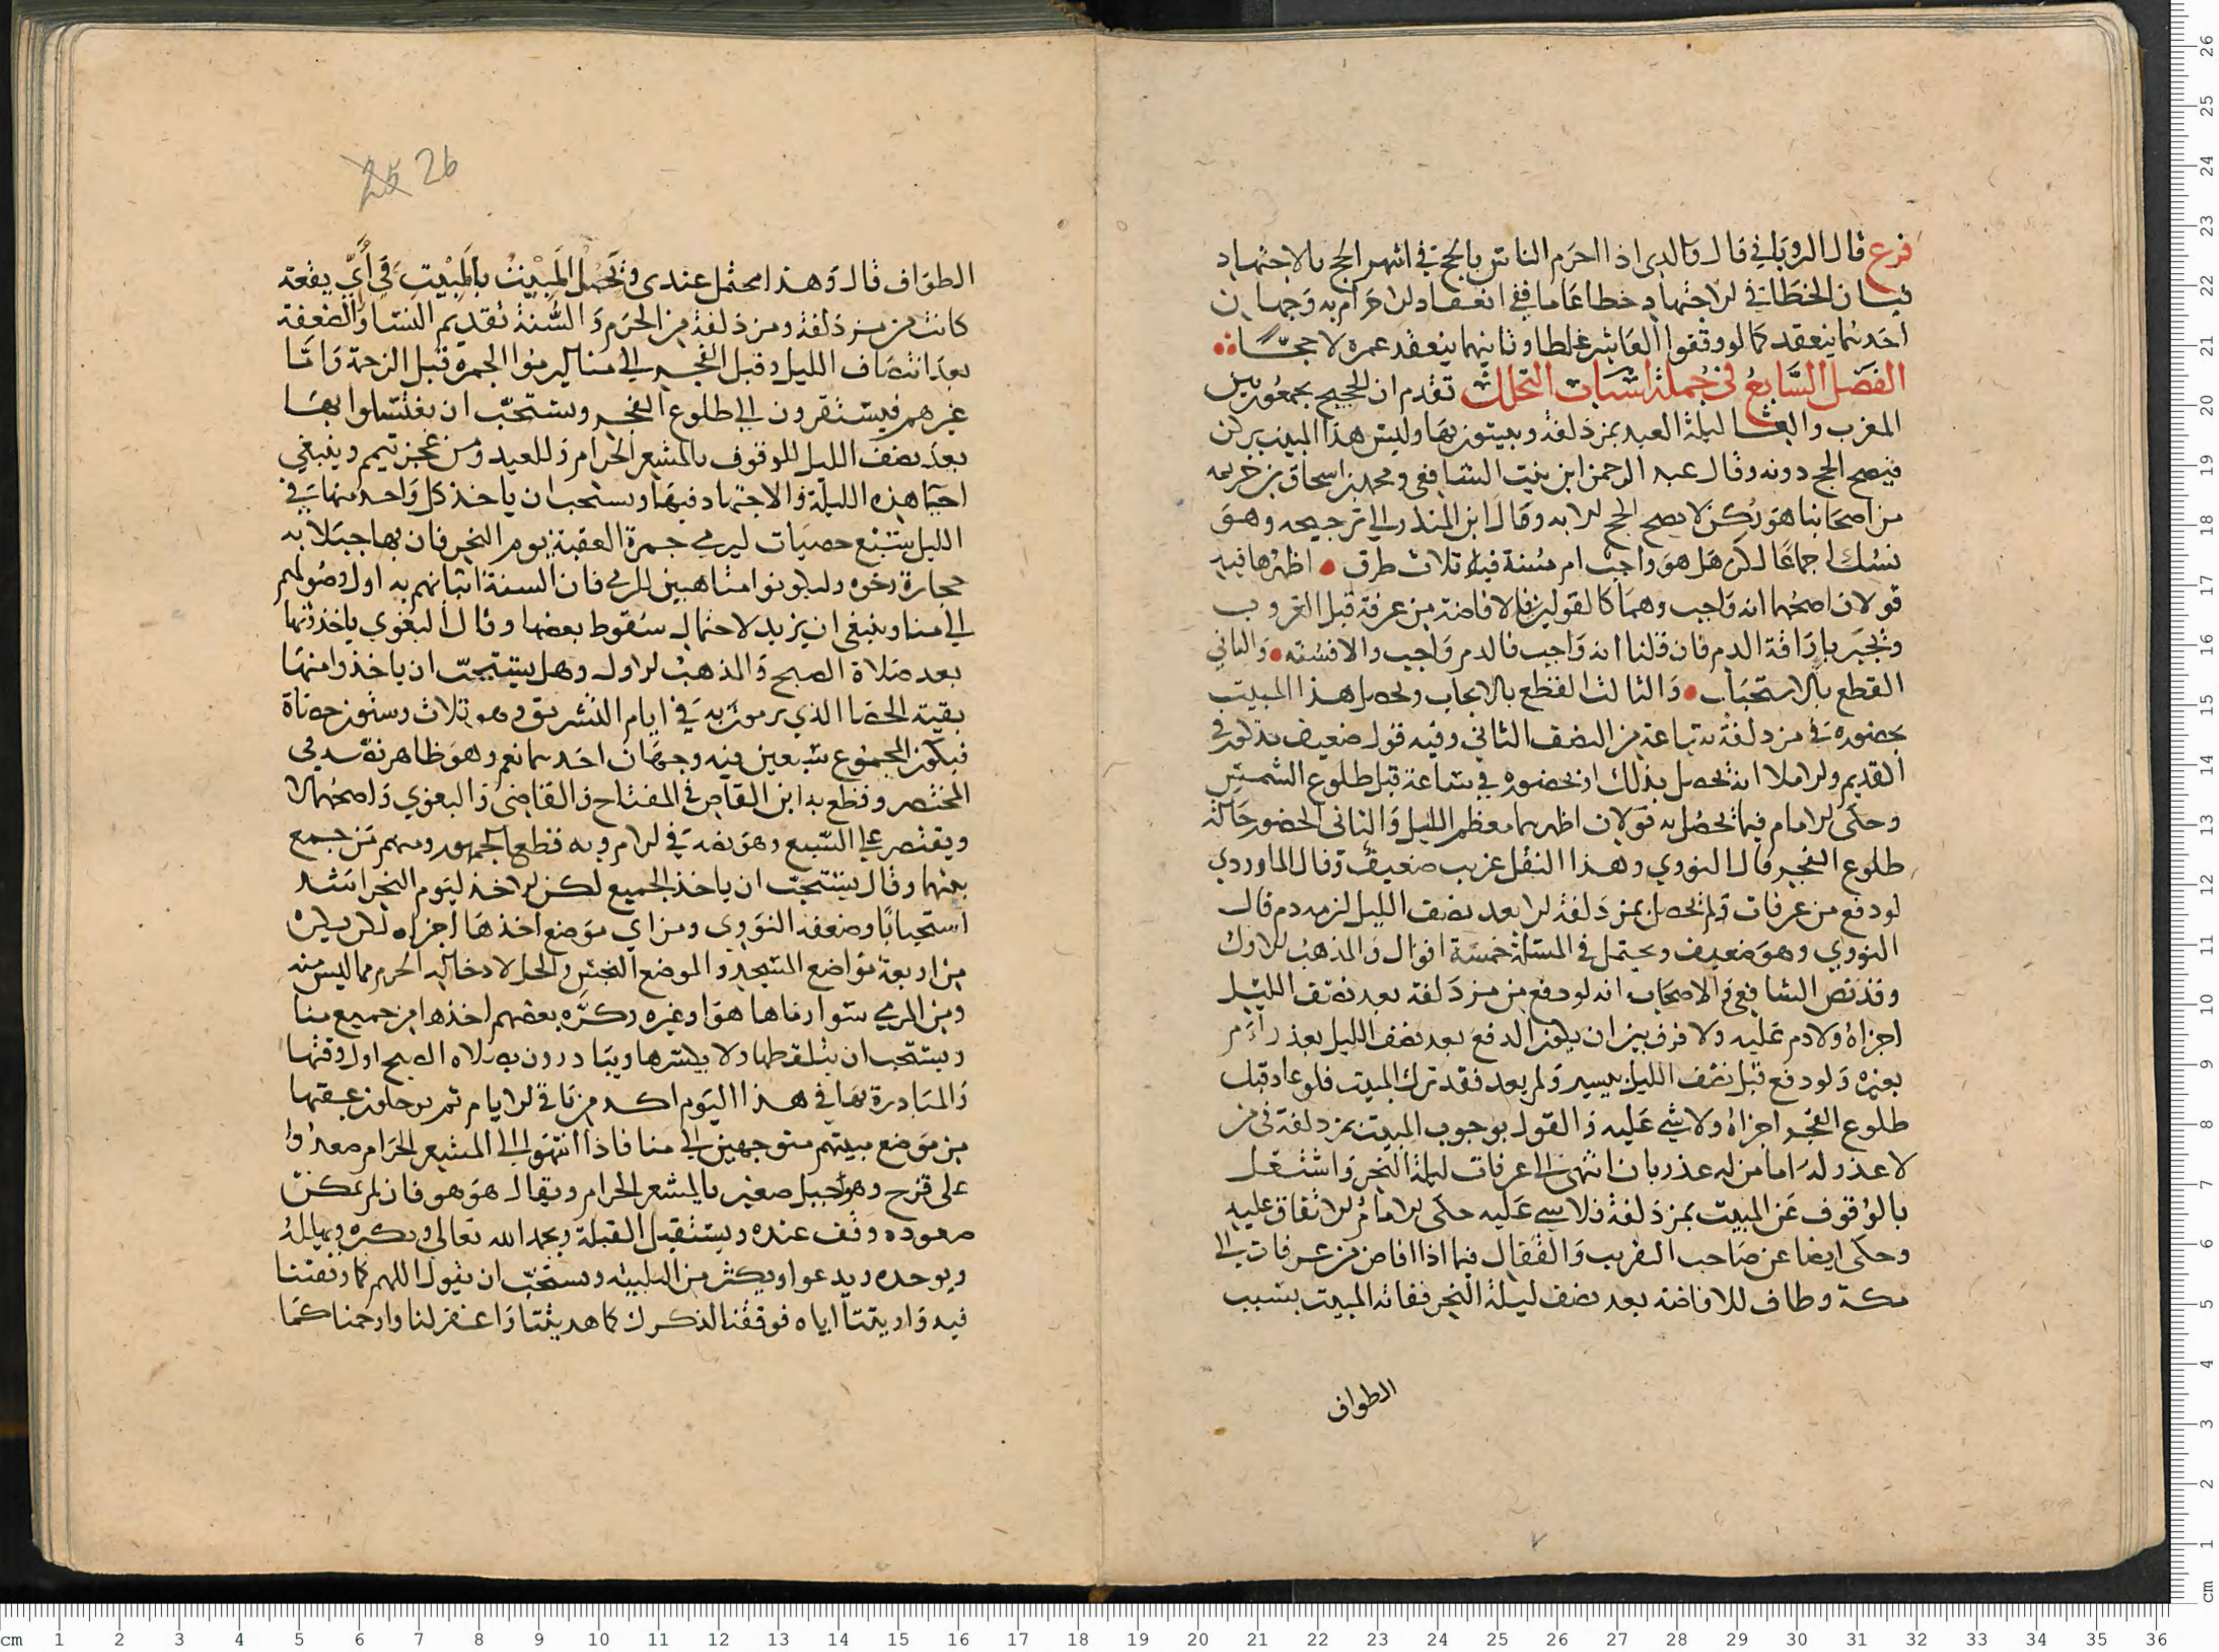 فرع قال الروياني قال والدي اذا احرم الناس بالحج في اشهر الحج بالاجتهاد
فبان الخطا في الاجتهاد خطا عاما ففي انعقاد الاحرام به وجهان
احدهما ينعقد كما لو وقفوا العاشر غلطا وثانيهما ينعقد عمرة لا حجا
الفصل السابع في جملة اسباب التحلل تقدم ان الحجيج يجمعون بين
المغرب والعشا ليلة العيد بمزدلفة ويبيتون بها وليس هذا المبيت بركن
فيصح الحج دونه وقال عبد الرحمن ابن بنت الشافعي ومحمد بن اسحاق بن خزيمه
من اصحابنا هو ركن لا يصح الحج الا به وقال ابن المنذر الى ترجيحه وهو
نسك اجماعا لكن هل هو واجب ام سنة فيه ثلاث طرق اظهرها فيه
قولان اصحهما انه واجب وهما كالقولين في الافاضة من عرفة قبل الغروب
وتجبر باراقة الدم فان قلنا انه واجب فالدم واجب والا فسنه والثاني
القطع بالاستحباب والثالث القطع بالايجاب ويحصل هذا المبيت
بحضوره في مزدلفة ساعة من النصف الثاني وفيه قول ضعيف مذكور في
القديم والاملا انه يحصل بذلك او بحضوره في ساعة قبل طلوع الشمس
وحكى الامام فيما يحصل به قولان اظهرهما معظم الليل والثاني الحضور حالة
طلوع الفجر قال النووي وهذا النقل غريب ضعيف وقال الماوردي
لو دفع من عرفات ولم يحصل بمزدلفة الا بعد نصف الليل لزمه دم قال
النووي وهو ضعيف ويحتمل في المسئلة خمسة اقوال والمذهب الاول
وقد نص الشافعي والاصحاب انه لو دفع من مزدلفة بعد نصف الليل
اجزاه ولا دم عليه ولا فرق بين ان يكون الدفع بعد نصف الليل بعذر ام
بغيره ولو دفع قبل نصف الليل بيسير ولم يعد فقد ترك المبيت فلو عاد قبل
طلوع الفجر اجزاه ولا شي عليه ذا القول بوجوب المبيت بمزدلفة في من
لا عذر له اما من له عذر بان انتهى الى عرفات ليلة النحر واشتغل
بالوقوف عن المبيت بمزدلفة فلا شي عليه حكى الامام الاتفاق عليه
وحكى ايضا عن صاحب التقريب والقفال فيما اذا افاض من عرفات الى
مكة وطاف للافاضة بعد نصف ليلة النحر ففاته المبيت بسبب
الطواف
26
25
الطواف قال وهذا محتمل عندي ويحصل المبيت بالمبيت في أي بقعة
كانت من مزدلفة ومزدلفة من الحرم والسنة تقديم النسا والضعفة
بعد انتصاف الليل وقبل الفجر الى منا ليرموا الجمرة قبل الزحمة واما
غيرهم فيستقرون الى طلوع الفجر ويستحب ان يغتسلوا بها
بعد نصف الليل للوقوف بالمشعر الحرام وللعيد ومن عجز تيمم وينبغي
احيا هذه الليلة والاجتهاد فيها ويستحب ان ياخذ كل واحد منها في
الليل سبع حصيات ليرمي جمرة العقبة يوم النحر فان بها جبلا به
حجارة رخوه وليكونوا متاهبين للرمي فان السنة اتيانهم به اول وصولهم
الى منا وينبغي ان يزيد لاحتمال سقوط بعضها وقال البغوي ياخذونها
بعد صلاة الصبح والمذهب الاول وهل يستحب ان ياخذوا منها
بقية الحصا الذي يرمون به في ايام التشريق وهو ثلاث وستون حصاة
فيكون المجموع سبعين فيه وجهان احدهما نعم وهو ظاهر نصه في
المختصر وقطع به ابن القاص في المفتاح والقاضي والبغوي واصحهما لا
ويقتصر على السبع وهو نصه في الام وبه قطع الجمهور ومنهم من جمع
بينهما وقال يستحب ان ياخذ الجميع لكن الاخذ ليوم النحر اشد
استحبابا وضعفه النووي ومن اي موضع اخذها اجزاه لكن يكره
من اربعة مواضع المسجد والموضع النجس والحل لادخاله الحرم ما ليس منه
ومن المرمي سوا رماها هو او غيره وكره بعضهم اخذها من جميع منا
ويستحب ان يلتقطها ولا يكسرها ويبادرون بصلاه الصبح اول وقتها
والمبادرة بها في هذا اليوم اكد من باقي الايام ثم يرحلون عقبها
من موضع مبيتهم متوجهين الى منا فاذا انتهوا الى المشعر الحرام صعدوا
على قزح وهو جبل صغير بالمشعر الحرام ويقال هو هو فان لم يمكن
صعوده وقف عنده ويستقبل القبلة ويحمد الله تعالى ويكبره ويهلله
ويوحده ويدعو ويكثر من التلبيه ويستحب ان يقول اللهم كما وقفتنا
فيه واريتنا اياه فوفقنا لذكرك كما هديتنا واغفر لنا وارحمنا كما